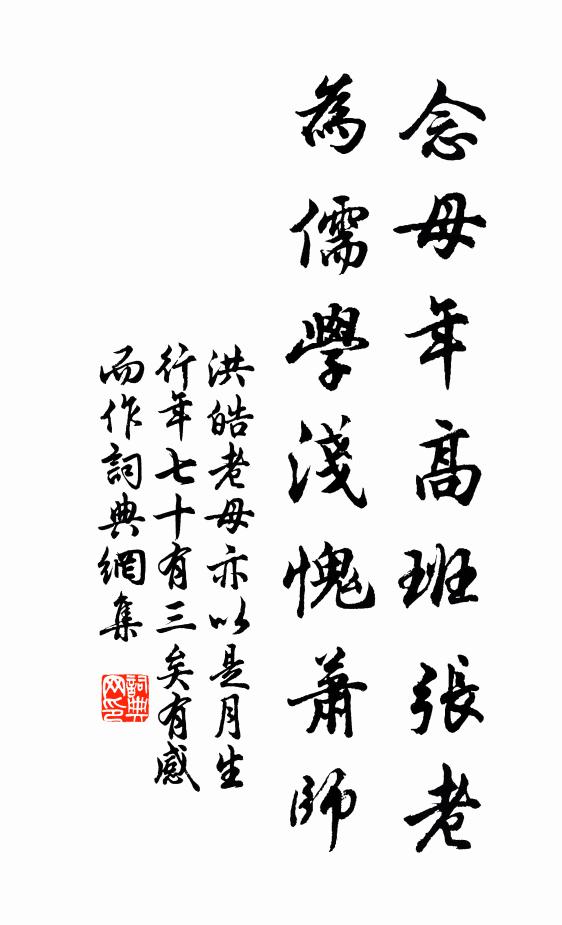 念母年高班張老
為儒學淺愧蕭師
洪皓老母亦以是月生
行年七十有三矣有感
而作詞典網集
詞典网印